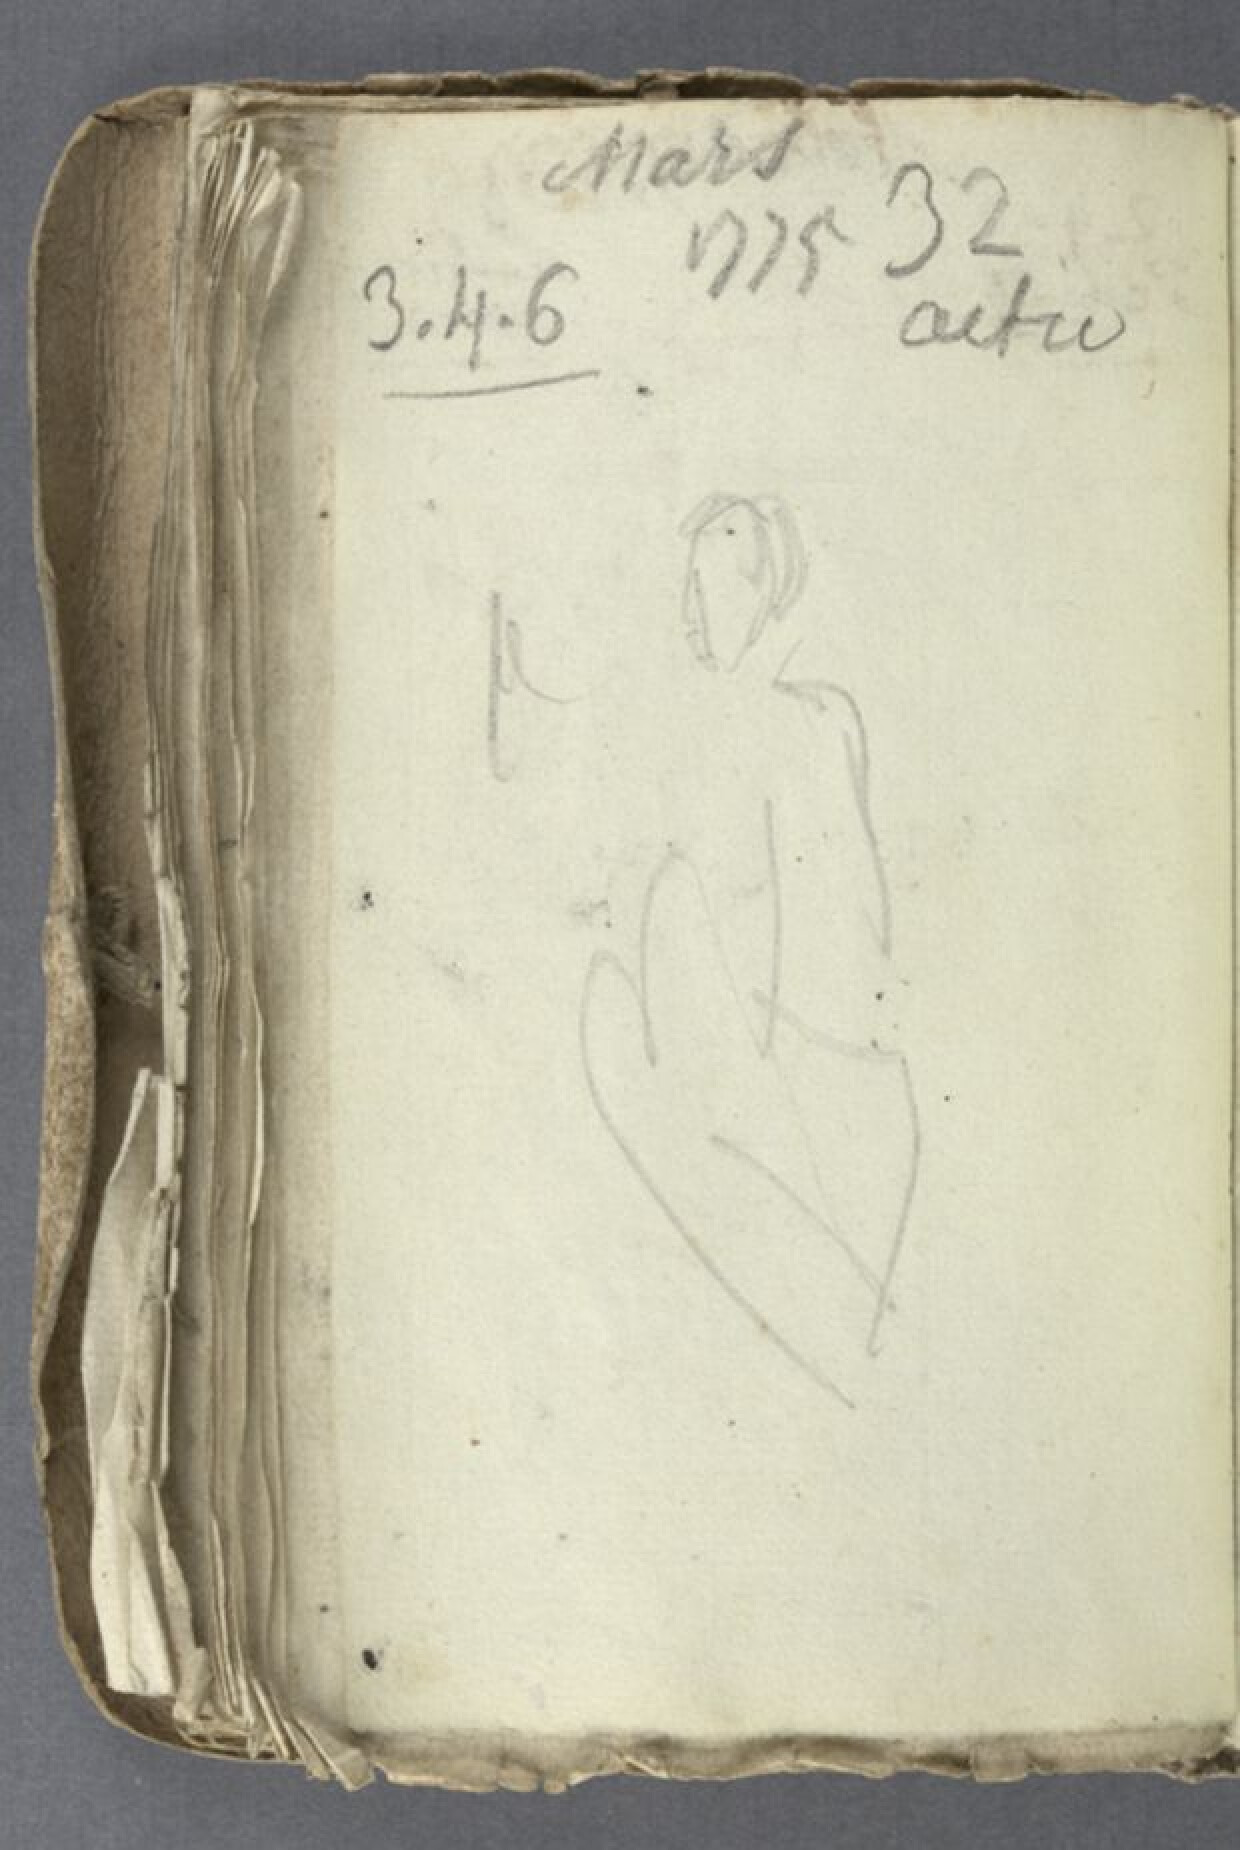 Mars
1775 32
3.4.6